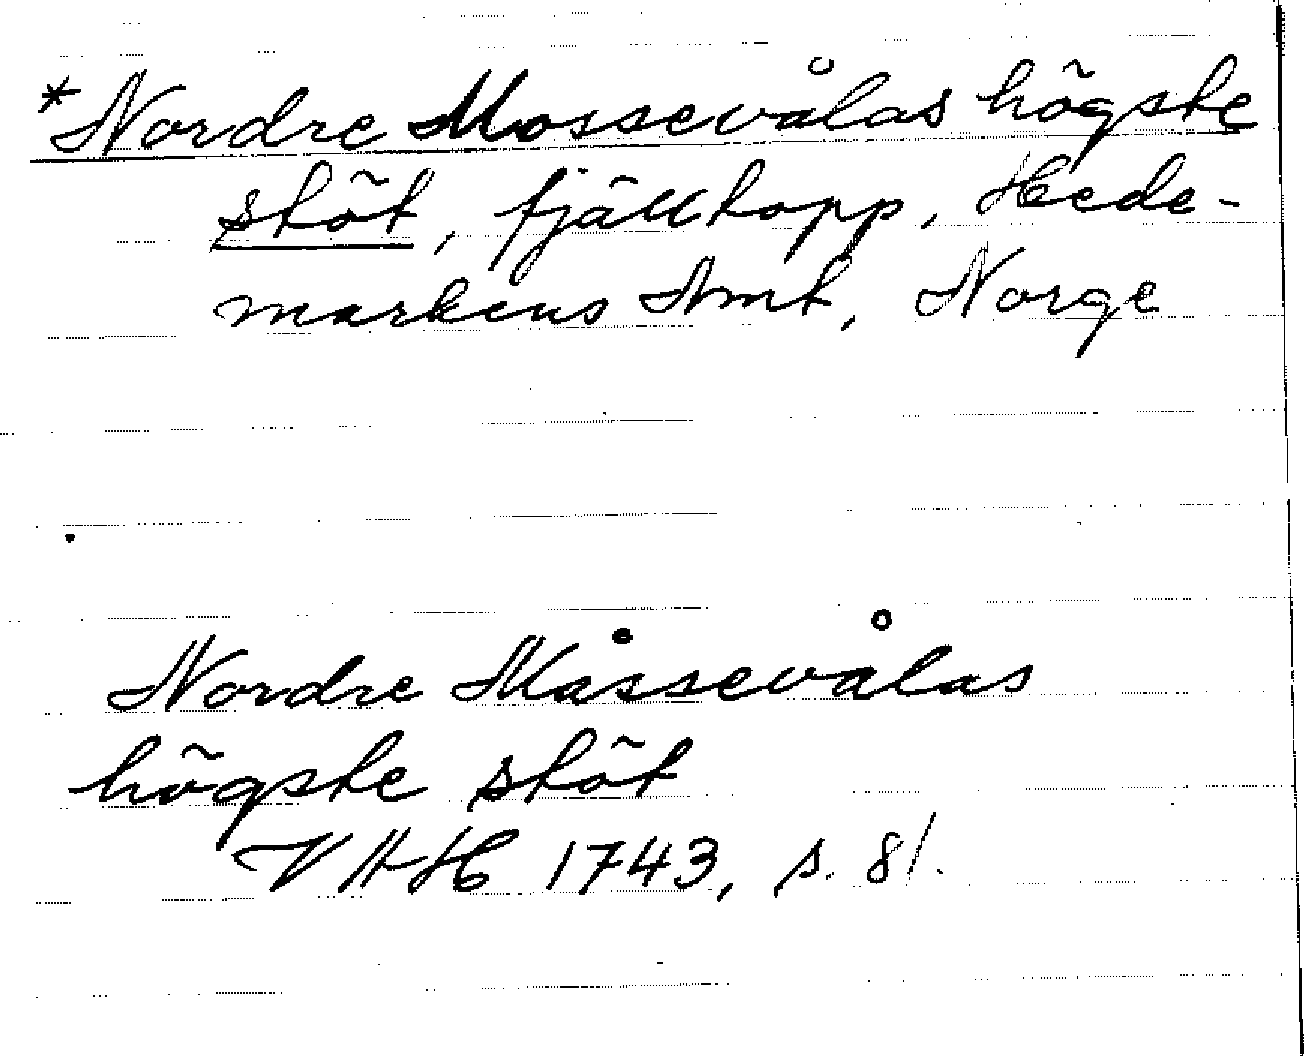 *Nordre Mossevålas högste
stöt, fjälltopp, Hede-
markens Amt, Norge
Nordre Måssevålas
högste stöt
VAH 1743, s. 81.